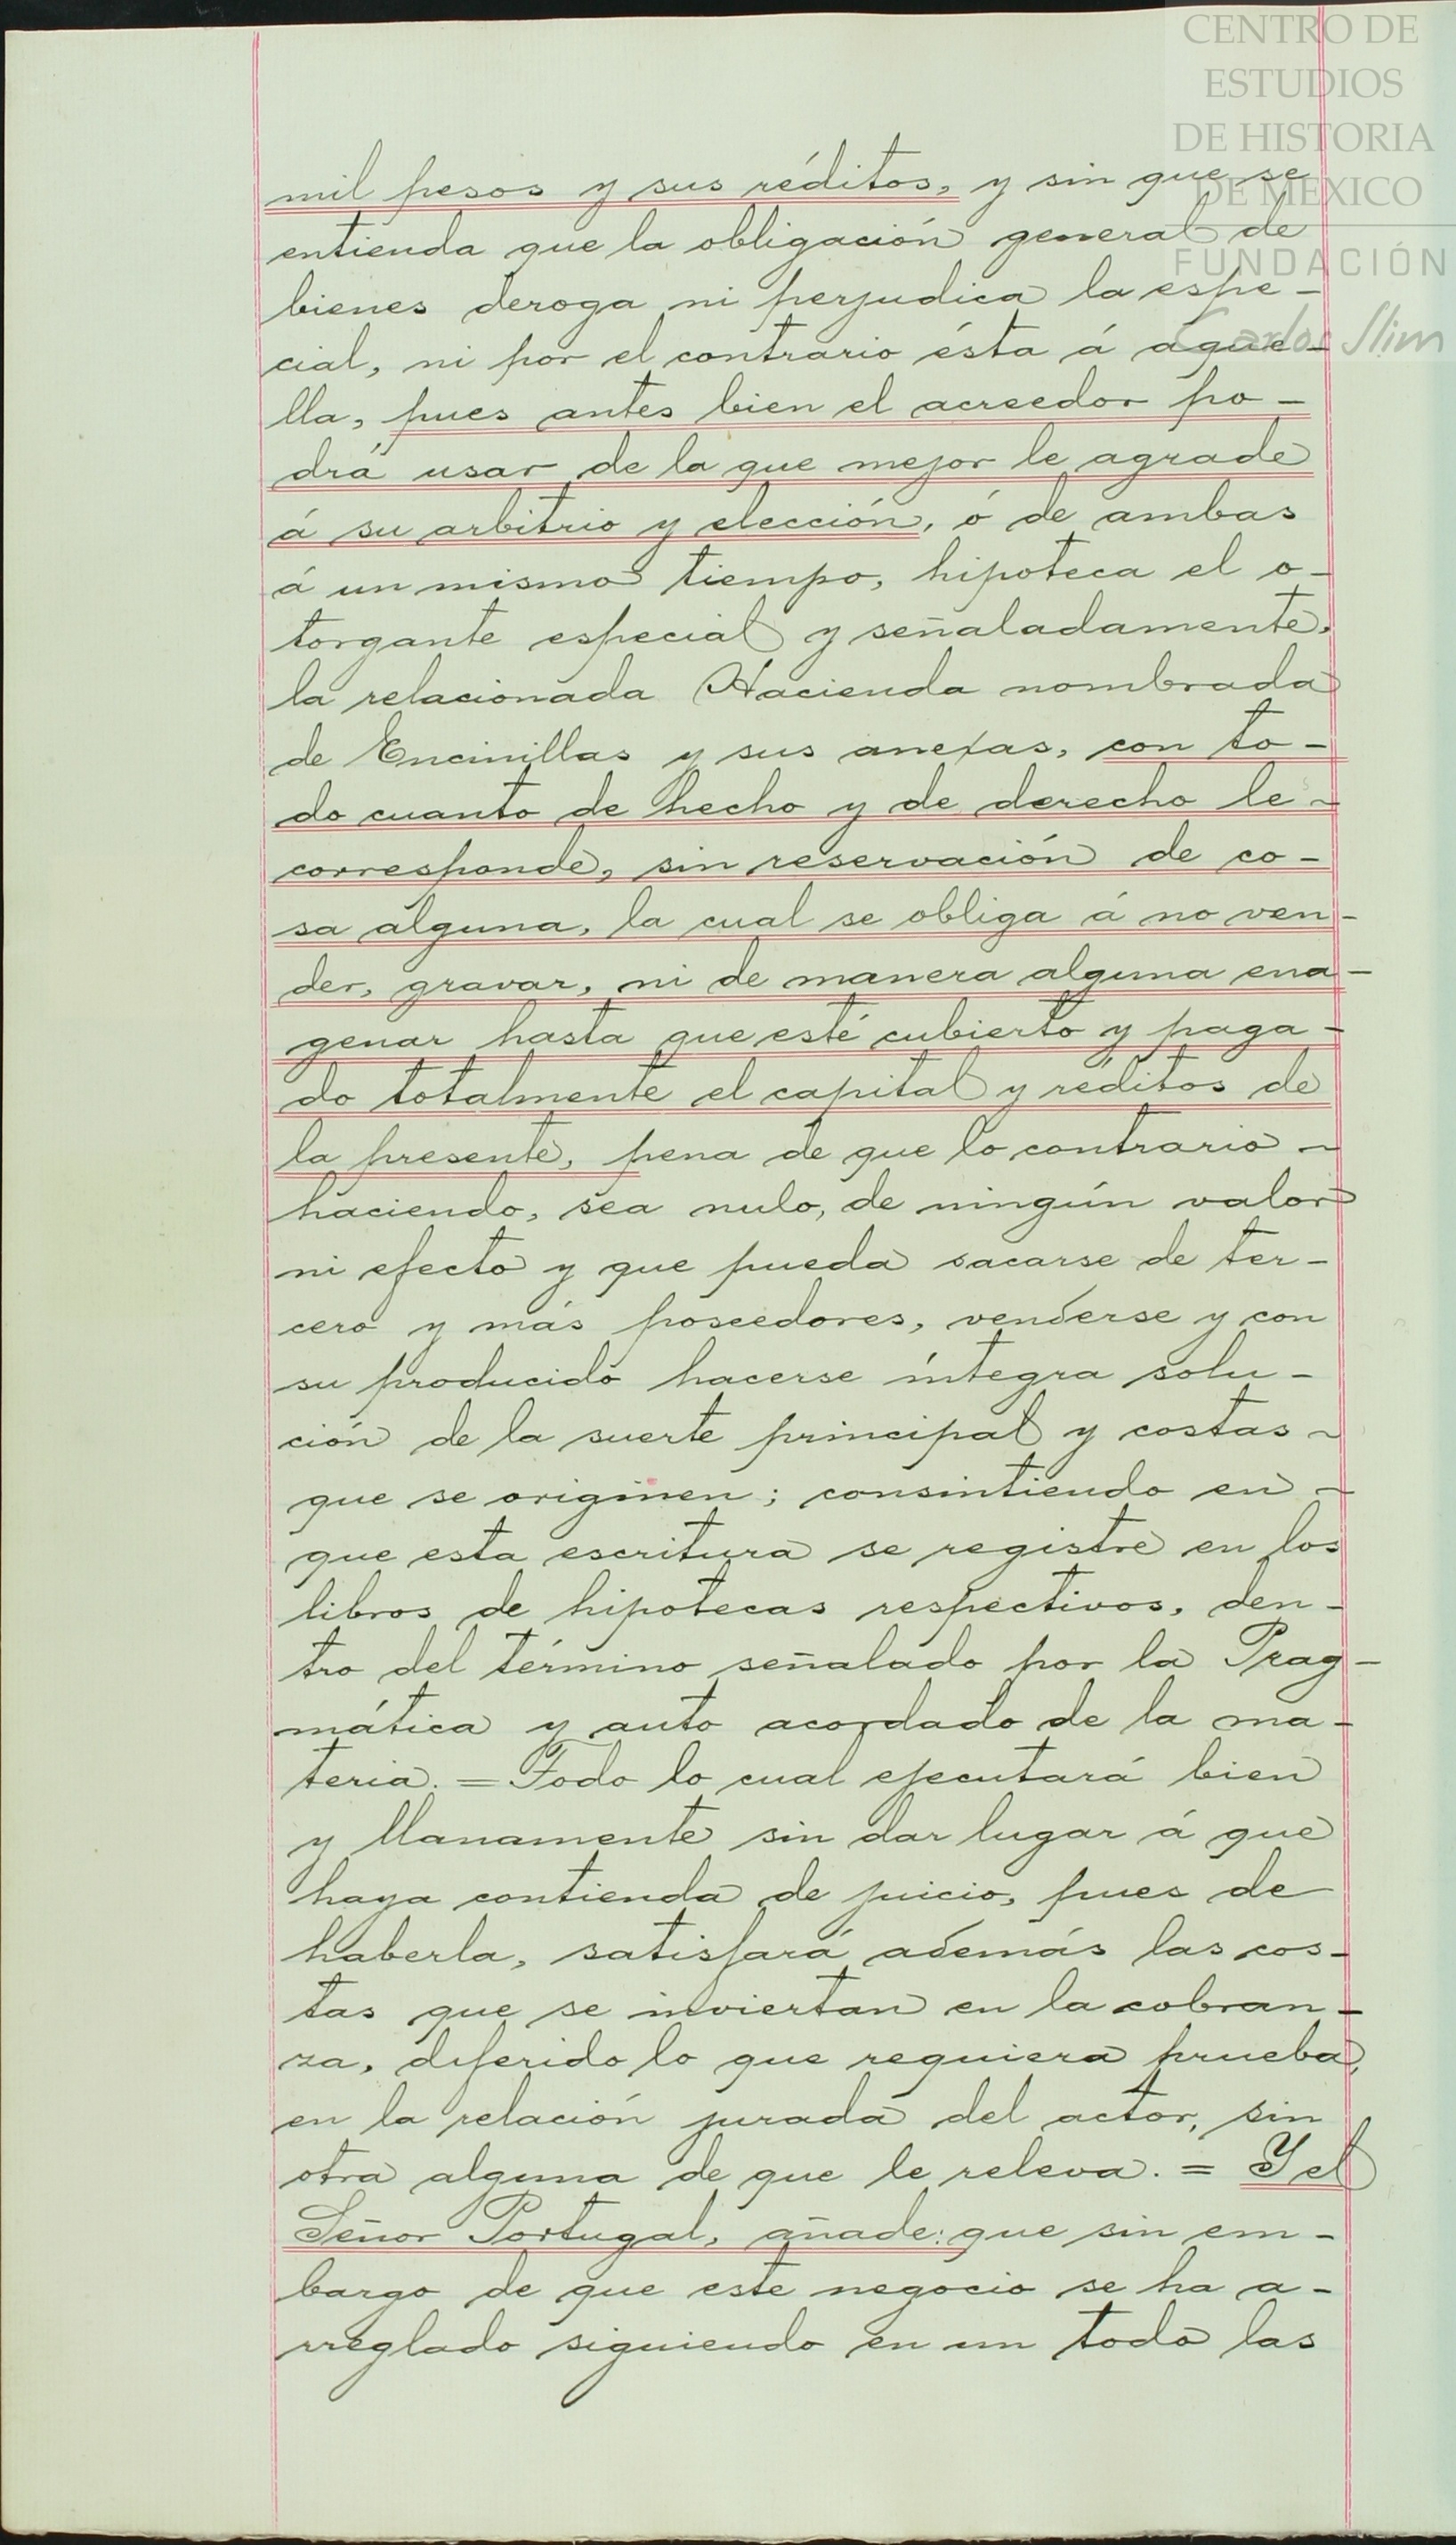 CENTRO DE
ESTUDIOS
DE HISTORIA
DE MEXICO
FUNDACIÓN
Carlos Slim
mil pesos y sus réditos, y sin que se
entienda que la obligación general de
bienes deroga ni perjudica la espe-
cial, ni por el contrario ésta á aque-
lla, pues antes bien el acreedor po-
drá usar de la que mejor le agrade
á su arbitrio y elección, ó de ambas
á un mismo tiempo, hipoteca el o-
torgante especial y señaladamente,
la relacionada Hacienda nombrada
de Encinillas y sus anexas, con to-
do cuanto de hecho y de derecho le-
corresponde, sin reservación de co-
sa alguna, la cual se obliga á no ven-
der, gravar, ni de manera alguna ena-
genar hasta que esté cubierto y paga-
do totalmente el capital y réditos de
la presente, pena de que lo contrario -
haciendo, sea nulo, de ningún valor
ni efecto y que pueda sacarse de ter-
cero y más poseedores, venderse y con
su producido hacerse íntegra solu-
ción de la suerte principal y costas -
que se originen; consintiendo en -
que esta escritura se registre en los
libros de hipotecas respectivos, den-
tro del término señalado por la Prag-
mática y auto acordado de la ma-
teria. = Todo lo cual ejecutará bien
y llanamente sin dar lugar á que
haya contienda de juicio, pues de
haberla, satisfará además las cos-
tas que se inviertan en la cobran-
za, diferido lo que requiera prueba,
en la relación jurada del actor, sin
otra alguna de que le releva. = Y el
Señor Portugal, añade: que sin em-
bargo de que este negocio se ha a-
rreglado siguiendo en un todo las